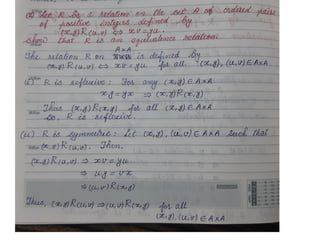 (1) Let R be a relation on the set A of ordered pairs
of positive integers defined by
(x,y)R(u,v) ⇔ xv = yu.
show that R is an equivalence relation.
A×A
The relation R on is defined by
(x,y)R(u,v) ⇔ xv = yu for all (x,y),(u,v) ∈ A×A
(i) R is reflexive: For any (x,y) ∈ A×A
xy = yx ⇒ (x,y)R(x,y)
Thus (x,y)R(x,y) for all (x,y) ∈ A×A
So, R is reflexive.
(ii) R is symmetric: Let (x,y),(u,v) ∈ A×A such that
(x,y)R(u,v). Then,
(x,y)R(u,v) ⇒ xv = yu
⇒ uy = vx
⇒ (u,v)R(x,y)
Thus, (x,y)R(u,v) ⇒ (u,v)R(x,y) for all
(x,y),(u,v) ∈ A×A